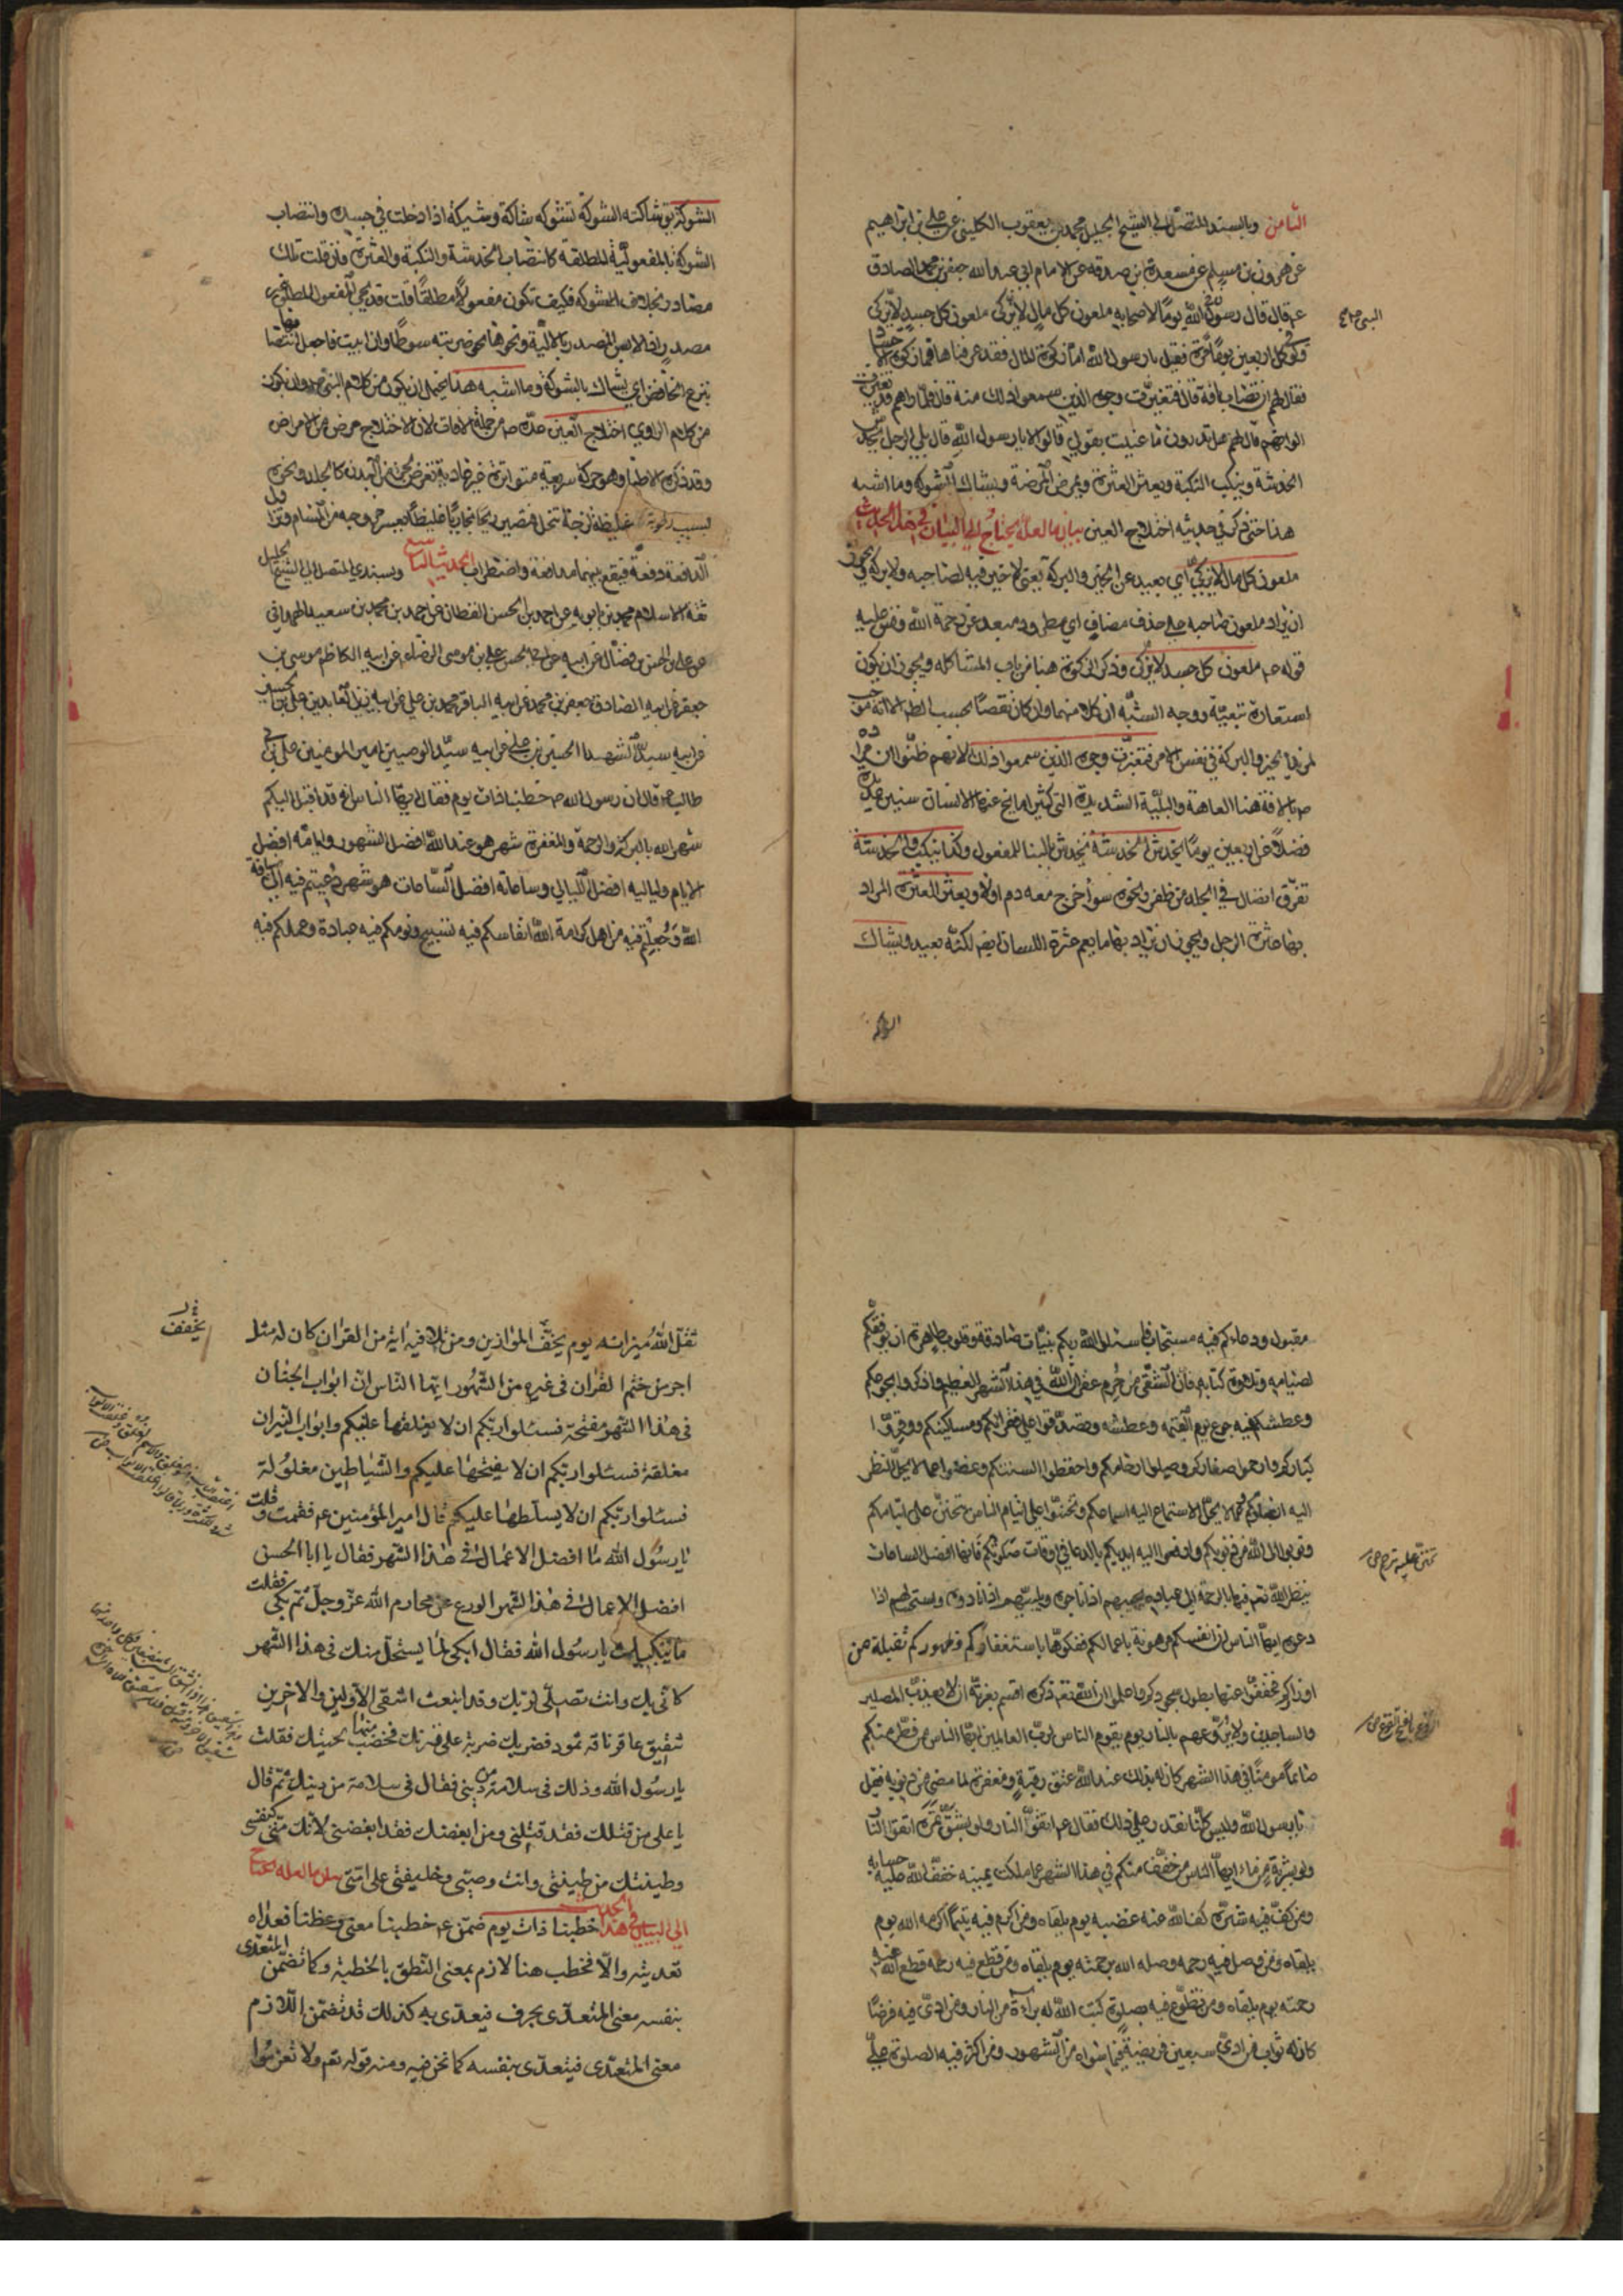 الثامن وبالسند المتصل الى الشيخ الجليل محمد بن يعقوب الكليني عن علي بن ابراهيم
عن هرون بن مسلم عن مسعدة بن صدقه عن الامام ابي عبد الله جعفر بن محمد الصادق
ع قال قال رسول الله يوما لاصحابه ملعون كل مال لا يزكى ملعون كل جسد لا يزكى
ولو في كل اربعين يوما مرة فقيل يا رسول الله اما زكوة المال فقد عرفناها فما زكوة الاجساد
فقال لهم ان تصاب بافة قال فتغيرت وجوه الذين سمعوا ذلك منه قال فلما راهم قد تغيرت
الوانهم قال لهم هل تدرون ما عنيت بقولي قالوا لا يا رسول الله قال بلى الرجل يخدش
الخدشة وينكب النكبة ويعثر العثرة ويمرض المرضة ويشاك الشوكه وما اشبه
هذا حتى ذكر في حديثه اختلاج العين بيان ما لعله يحتاج الى البيان في هذا الحديث
ملعون كل مال لا يزكى اي بعيد عن الخير والبركة يعني لا خير فيه لصاحبه ولا بركة ويجوز
ان يراد ملعون صاحبه على حذف مضاف اي مطرود مبعد عن رحمة الله وقس عليه
قوله ص ملعون كل جسد لا يزكى وذكر الزكوة هنا من باب المشاكله ويجوز ان يكون
استعارة تبعيّة ووجه الشبه ان كلا منهما وان كان نقصا بحسب الظاهر الا انه موجب
لمزيد الخير والبركة في نفس الامر فتغيرت وجوه الذين سمعوا ذلك لانهم ظنوا ان مراده
ص بالافة هنا العاهة والبلية الشديدة التي كثيرا ما يخ عنها الانسان سنين عديدة
فضلا عن اربعين يوما يخدش الخدشة يخدش بالبنا للمفعول وكذا ينكب والخدشة
تفرق اتصال في الجلد من ظفر ونحوه سواء خرج معه دم اولا ويعثر العثرة المراد
بها عثرة الرجل ويجوز ان يراد بها ما يعم عثرة اللسان ايض لكنه بعيد ويشاك
الشوكة
النبي ص
الشوكة يق شاكته الشوكة تشوكه شاكة وشيكة اذا دخلت في جسده وانتصاب
الشوكة بالمفعولية المطلقة كانتصاب الخدشة والنكبة والعثرة فان قلت تلك
مصادر بخلاف الشوكه فكيف تكون مفعولا مطلقا قلت قد يجيء المفعول المطلق غير
مصدر اذا لابس المصدر بالالية ونحوها نحو ضربته سوطا وان ابيت فاجعل انتصابها
بنزع الخافض اي يشاك بالشوكة وما اشبه هذا يحتمل ان يكون من كلام النبي ص وان يكون
من كلام الراوي اختلاج العين عدّه ص من جملة الافات لان الاختلاج مرض من الامراض
وقد ذكره الاطباء وهو حركة سريعة متواترة غير عادية تعرض لجزء من البدن كالجلد ونحوه
بسبب رطوبة غليظة لزجة تنحل فتصير ريحا بخاريا غليظا يعسر خروجه من المسام وتزاول
الدافعة دفعه فيقع بينهما مدافعة واضطراب الحديث التاسع وبسندي المتصل الى الشيخ الجليل
ثقة الاسلام محمد بن بابويه عن احمد بن الحسن القطان عن احمد بن محمد بن سعيد الهمداني
عن علي بن الحسن بن فضال عن ابيه عن ابي الحسن علي بن موسى الرضا ع عن ابيه الكاظم موسى بن
جعفر عن ابيه الصادق جعفر بن محمد عن ابيه الباقر محمد بن علي عن ابيه زين العابدين علي بن الحسين
عن ابيه سيد الشهداء الحسين بن علي عن ابيه سيد الوصيين امير المؤمنين علي بن ابي
طالب ع قال ان رسول الله ص خطبنا ذات يوم فقال ايها الناس انه قد اقبل اليكم
شهر الله بالبركة والرحمة والمغفرة شهر هو عند الله افضل الشهور وايامه افضل
الايام ولياليه افضل الليالي وساعاته افضل الساعات هو شهر دعيتم فيه الى ضيافة
الله وجعلتم فيه من اهل كرامة الله انفاسكم فيه تسبيح ونومكم فيه عبادة وعملكم فيه
مقبول ودعاءكم فيه مستجاب فاسئلوا الله ربكم بنيات صادقة وقلوب طاهرة ان يوفقكم
لصيامه وتلاوة كتابه فان الشقي من حرم غفران الله في هذا الشهر العظيم واذكروا بجوعكم
وعطشكم فيه جوع يوم القيمة وعطشه وتصدقوا على فقرائكم ومساكينكم ووقروا
كباركم وارحموا صغاركم وصلوا ارحامكم واحفظوا السنتكم وغضوا عما لا يحل النظر
اليه ابصاركم وعما لا يحل الاستماع اليه اسماعكم وتحننوا على ايتام الناس يتحنن على ايتامكم
وتوبوا الى الله من ذنوبكم وارفعوا اليه ايديكم بالدعا في اوقات صلوتكم فانها افضل الساعات
ينظر الله تعم فيها بالرحمة الى عباده يجيبهم اذا ناجوه ويلبيهم اذا نادوه ويستجيب لهم اذا
دعوه ايها الناس ان انفسكم مرهونة باعمالكم ففكوها باستغفاركم وظهوركم ثقيلة من
اوزاركم فخففوا عنها بطول سجودكم واعلموا ان الله تعم ذكره اقسم بعزته ان لا يعذب المصلين
والساجدين ولا يروعهم بالنار يوم يقوم الناس لرب العالمين ايها الناس من فطر منكم
صائما مومنا في هذا الشهر كان له بذلك عند الله عتق رقبة ومغفرة لما مضى من ذنوبه فقيل
يا رسول الله وليس كلنا نقدر على ذلك فقال ع اتقوا النار ولو بشق تمرة اتقوا النار
ولو بشربة من ماء ايها الناس من خفف منكم في هذا الشهر عما ملكت يمينه خفف الله عليه حسابه
ومن كف فيه شره كف الله عنه غضبه يوم يلقاه ومن اكرم فيه يتيما اكرمه الله يوم
يلقاه ومن وصل فيه رحمه وصله الله برحمته يوم يلقاه ومن قطع فيه رحمه قطع الله عنه
رحمته يوم يلقاه ومن تطوع فيه بصلوة كتب الله له براءة من النار ومن ادى فيه فرضا
كان له ثواب من ادى سبعين فريضة فيما سواه من الشهور ومن اكثر فيه الصلوة علي
تحنن عليه ترحم ص
الروع بالفتح الفزع ص
ثقل الله ميزانه يوم يخف الموازين ومن تلا فيه اية من القران كان له مثل
اجر من ختم القران في غيره من الشهور ايها الناس ان ابواب الجنان
في هذا الشهر مفتحة فسئلوا ربكم ان لا يغلقها عليكم وابواب النيران
مغلقة فسئلوا ربكم ان لا يفتحها عليكم والشياطين مغلولة
فسئلوا ربكم ان لا يسلطها عليكم قال امير المؤمنين ع فقمت وقلت
يا رسول الله ما افضل الاعمال في هذا الشهر فقال يا ابا الحسن
افضل الاعمال في هذا الشهر الورع عن محارم الله عز وجل ثم بكى فقلت
ما يبكيك يا رسول الله فقال ابكى لما يستحل منك في هذا الشهر
كاني بك وانت تصلي لربك وقد ابنعث اشقى الاولين والاخرين
شقيق عاقر ناقة ثمود فضربك ضربة على قرنك فخضب منها لحيتك فقلت
يا رسول الله وذلك في سلامة من ديني فقال في سلامة من دينك ثم قال
يا علي من قتلك فقد قتلني ومن ابغضك فقد ابغضني لانك مني كنفسي
وطينتك من طينتي وانت وصيي وخليفتي على امتي بيان ما لعله يحتاج
الى البيان في هذا الحديث خطبنا ذات يوم ضمن ع خطبنا معنى وعظنا فعداه
تعديته والا فخطب هنا لازم بمعنى النطق بالخطبة وكما تضمن المتعدى
بنفسه معنى المتعدى بحرف فيعدى به كذلك قد تضمن اللازم
معنى المتعدى فيتعدى بنفسه كما نحن فيه ومنه قوله تعم ولا تعزموا
يخفف